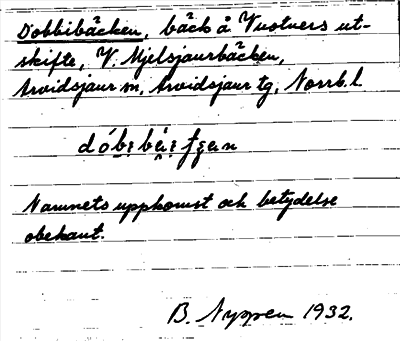 Dobbibäcken, bäck å Vuotners ut-
skifte, V. Mjelsjaurbäcken,
Arvidsjaur sn, Arvidsjaur tg, Norrb. l.
Namnets uppkomst och betydelse
obekant.
B. Nyppen 1932.